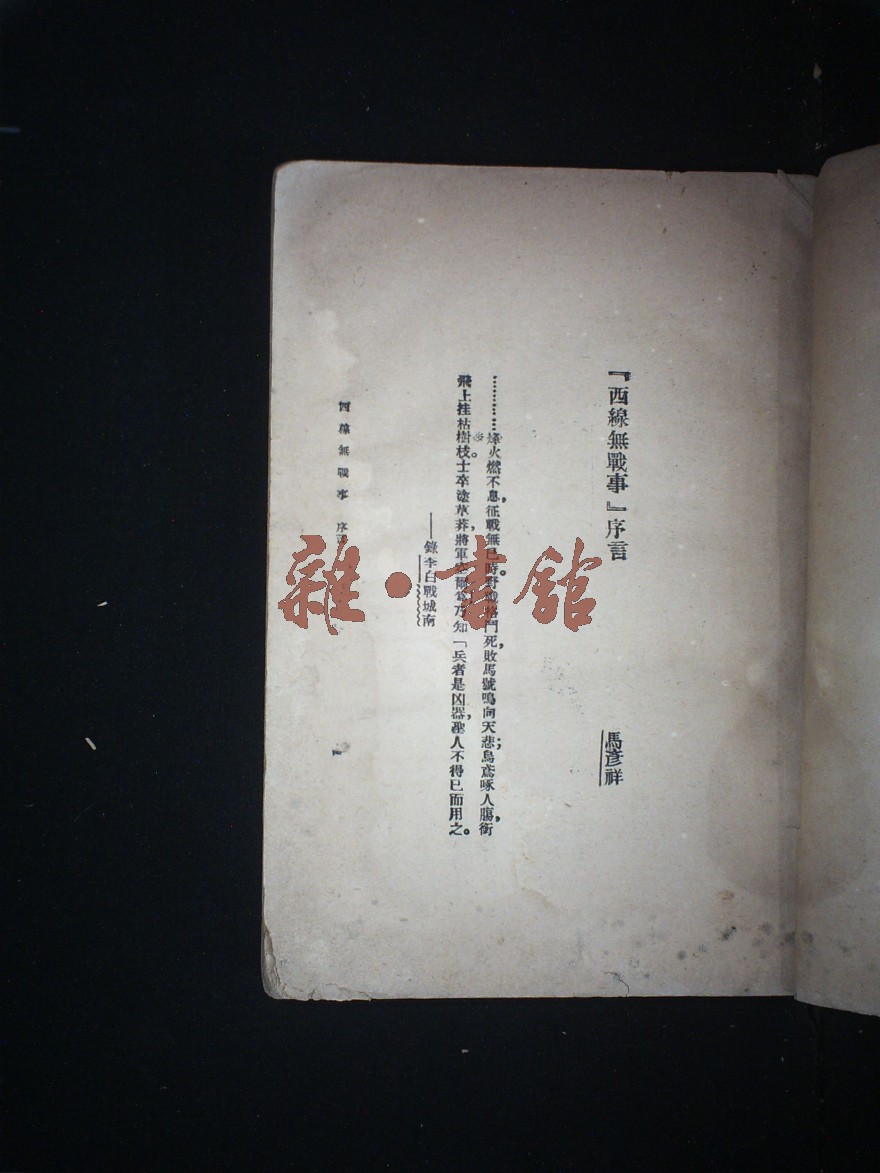 『西線無戰事』序言
馬彥祥
…………烽火燃不息，征戰無已時。野戰格鬥死，敗馬號鳴向天悲；烏鳶啄人腸，銜
飛上挂枯樹枝。士卒塗草莽，將軍空爾爲。乃知「兵者是凶器，聖人不得已而用之。
——錄李白戰城南
西線無戰事 序言
一
雜·書館